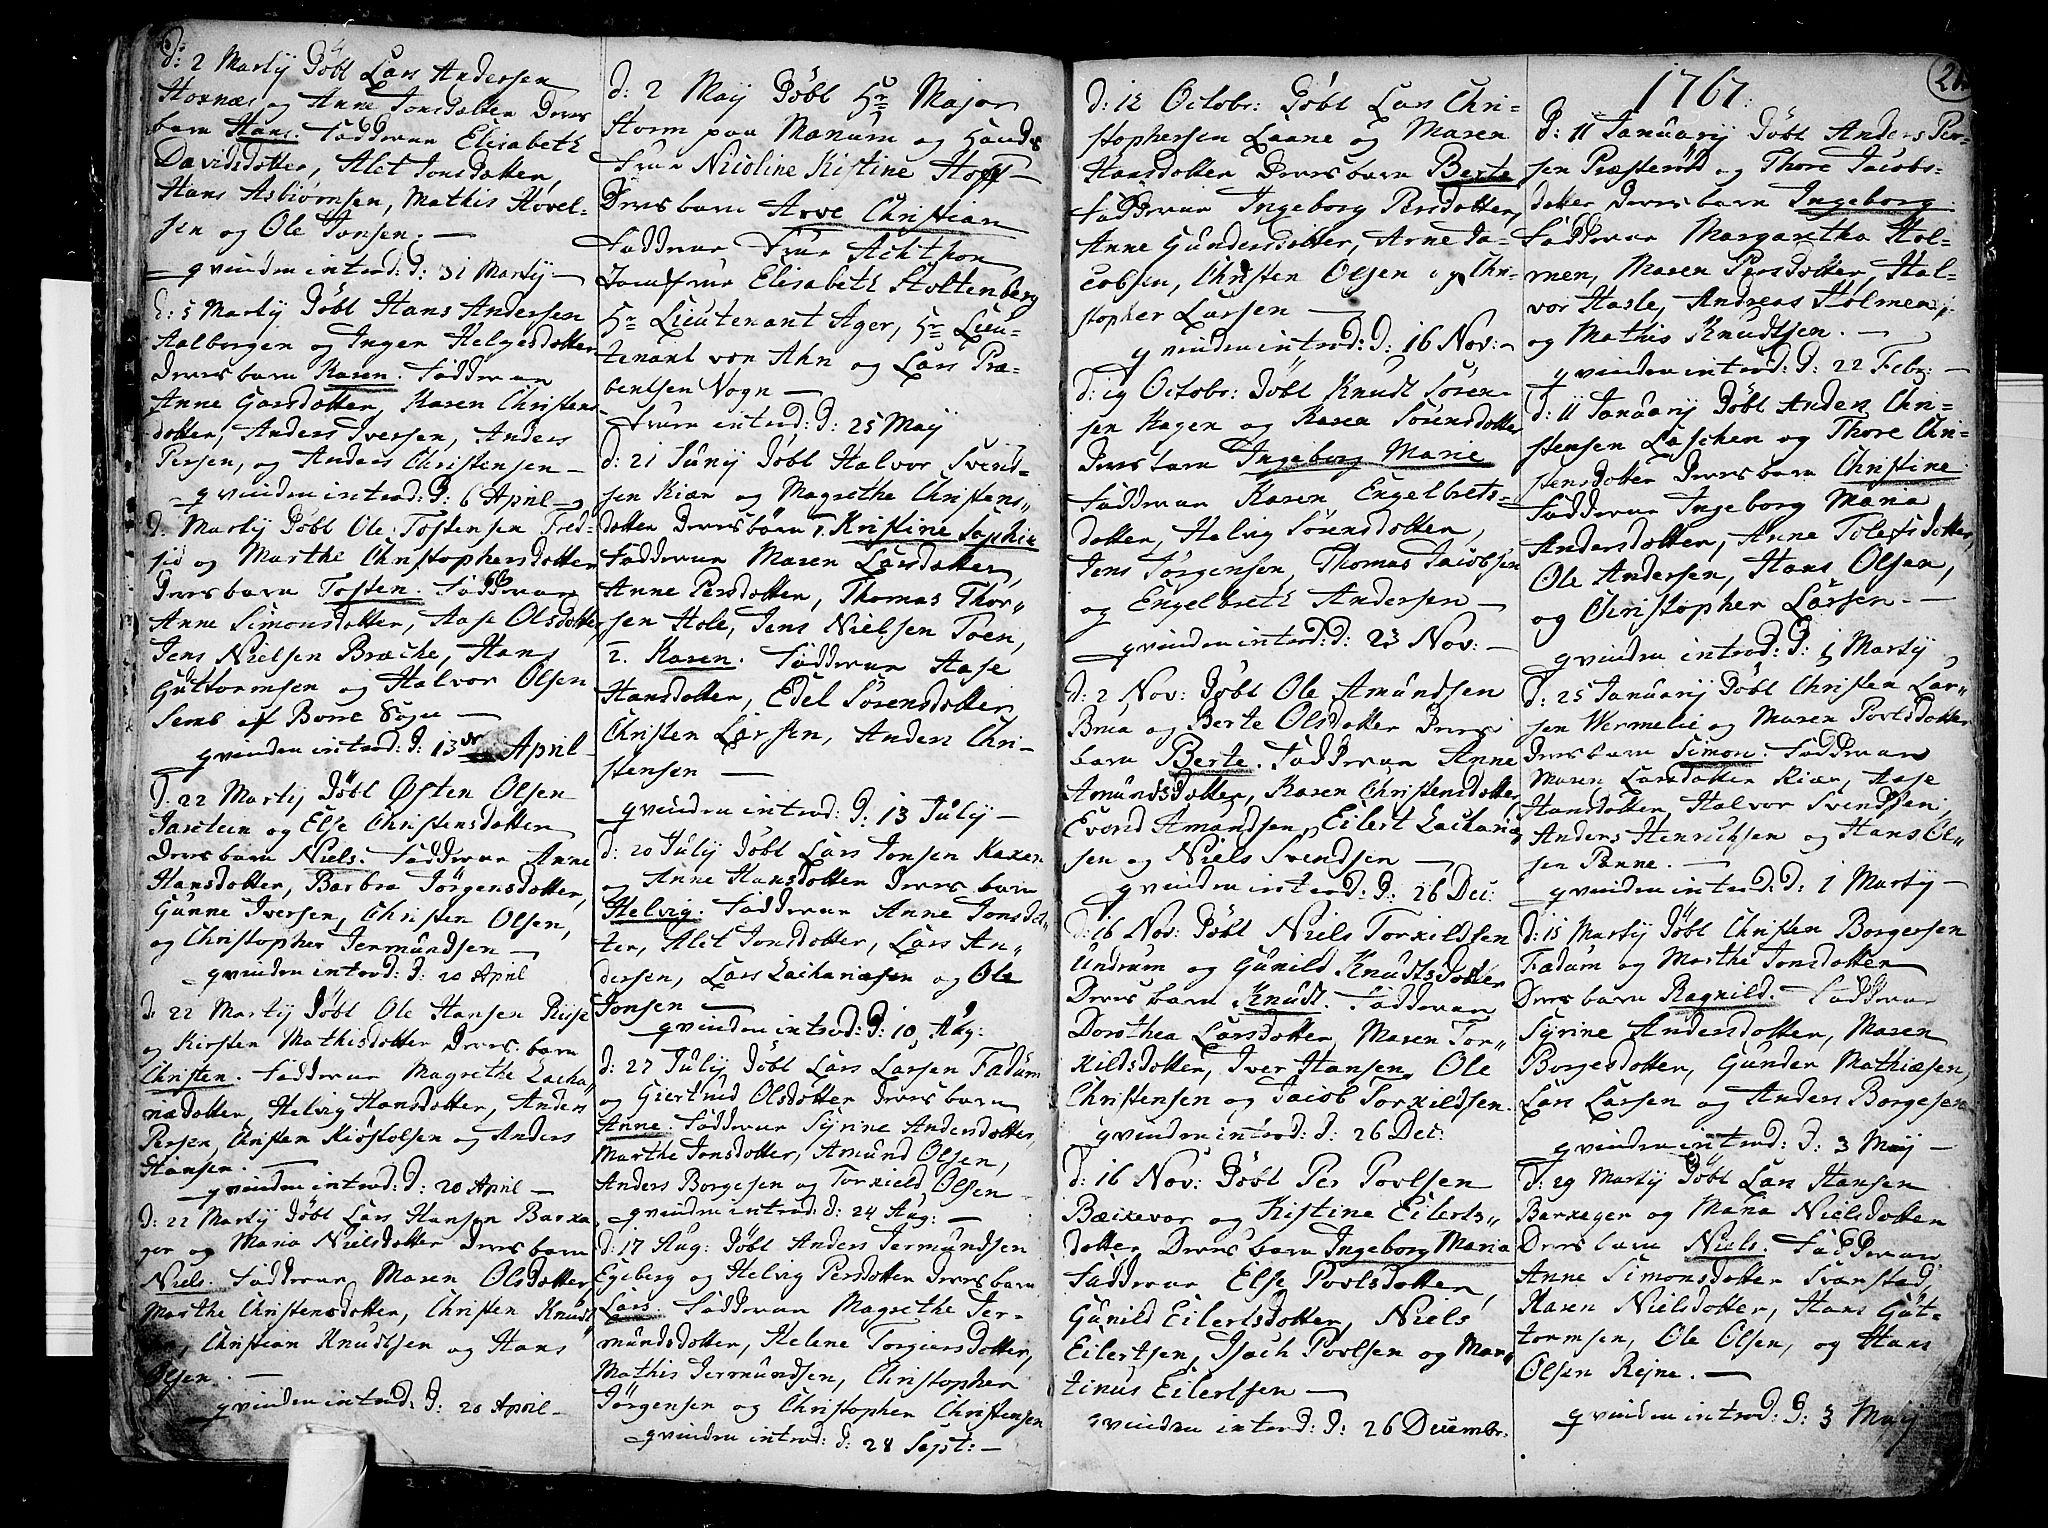 d: 2 Martij Döbt Lars Andersen
Hoxnæs og Anne Jonsdatter Deres
barn Hans. Fadderne Elisabeth
Davidsdotter, Alet Jonsdotter,
Hans Asbiörnsen, Mathis Hovel-
sen og Ole Jonsen. —
qvinden introd: d: 31 Martij —
d: 5 Martij Döbt Hans Andersen
Aalborgen og Inger Helgesdotter
Deres barn Karen. Fadderne
Anne Garsdotter, Karen Christens
dotter, Anders Iversen, Anders
Persen, og Anders Christensen —
qvinden introd: d: 6 April —
d. Martij Döbt Ole Tostensen
og Marthe Christophersdotter
Deres barn Tosten. Fadderne
Anne Simonsdotter, Aase Olsdotter
Jens Nielsen Bræcke, Hans
Guttormsen og Halvor Olsen
Semb af Borre Sogn —
qvinden introd: d: 13 April —
d: 22 Martij Döbt Østen Olsen
Jarstein og Else Christensdotter
Deres barn Niels. Fadderne Anne
Hansdotter, Barbra Jörgensdotter,
Gunne Iversen, Christen Olsen,
og Christopher Jermundsen —
qvinden introd: d: 20 April
d: 22 Martij Döbt Ole Hansen Riise
og Kirsten Mathisdotter Deres barn
Christen. Fadderne Magrethe Zacha
riædotter, Helvig Hansdotter, Anders
Persen, Christen Kiöstolsen og Anders
Hansen. —
qvinden introd: d: 20 April —
d: 22 Martij Döbt Lars Hansen Barka
ger og Maria Nielsdotter Deres barn
Niels. Fadderne Maren Olsdotter
Marthe Christensdotter, Christen Knudt
Christian Knudtsen og Hans
Olsen. —
qvinden introd: d: 20 April —
d: 2 Maij Döbt Hr Major
Storm paa Manum og Hands
Frue Nicoline Kistine Hoff —
Deres barn Arve Christian
Fadderne Frue Achthon
Jomfrue Elisabeth Stoltenberg
Hr Lieutenant Ager, Hr Lieu-
tenant von Ahn og Lars Præ-
bentsen Vogn —
Fruen introd: d: 25 Maij
d: 21 Junij Döbt Halvor Svend-
sen Kiær og Magrethe Christens
dotter Deres börn 1. Kristine Sophie
Fadderne Maren Larsdotter,
Anne Persdotter, Thomas Thor
sen Hole, Jens Nielsen Toen,
2. Karen. Fadderne Aase
Hansdotter, Edel Sörensdotter
Christen Larsen, Anders Chri-
stensen —
qvinden introd: d: 13 July —
d: 20 July Döbt Lars Jonsen Kaxen
og Anne Hansdotter Deres barn
Helvig. Fadderne Anne Jonsdot-
ter, Alet Jonsdotter, Lars An
dersen, Lars Zachariæsen og Ole
Jonsen —
qvinden introd: d: 10 Aug:
d: 27 July Döbt Lars Larsen Fadum
og Giertrud Olsdotter Deres barn
Anne. Fadderne Syrine Andersdotter,
Marthe Jonsdotter, Amund Olsen,
Anders Borgesen og Torkield Olsen —
qvinden introd: d: 24 Aug: —
d: 17 Aug: Döbt Anders Jermundsen
Egeberg og Helvig Persdotter Deres barn
Lars. Fadderne Magrethe Jer-
mundsdotter, Helene Torgiersdotter,
Mathis Jermundsen, Christopher
Jörgensen og Christopher Christensen
qvinden introd: d: 28 Sept: —
d: 12 Octobr: Döbt Lars Chri-
stophersen Laane og Maren
Hansdotter Deres barn Berte
Fadderne Ingeborg Persdotter,
Anne Gundersdotter, Arne Ja-
cobsen, Christen Olsen og Chri-
stopher Larsen —
qvinden introd: d: 16 Nov: —
d: 19 Octobr: Döbt Knudt Sören-
sen Hagen og Karen Sörensdotter
Deres barn Ingeborg Marie
Fadderne Karen Engelbrets-
dotter, Helvig Sörensdotter,
Jens Jörgensen, Thomas Jacobsen
og Engelbreth Andersen —
qvinden introd: d: 23 Nov: —
d: 2 Nov: Döbt Ole Amundsen
Brua og Berte Olsdotter Deres
barn Berte. Fadderne Anne
Amundsdotter, Karen Christensdotter,
Evond Amandsen, Eilert Zachariæ
sen og Niels Svendsen —
qvinden introd: d: 26 Dec:
d: 16 Nov: Döbt Niels Torkildsen
Undrum og Gunild Knudtsdotter
Deres barn Knudt. Fadderne
Dorothea Larsdotter, Maren Tor
kildsdotter, Iver Hansen, Ole
Christensen og Jacob Torkildsen.
qvinden introd: d: 26 Dec:
d: 16 Nov: Döbt Per Povlsen
Bæikevor og Kistine Eilerts
dotter Deres barn Ingeborg Maria
Fadderne Else Povlsdotter,
Gunild Eilertsdotter, Niels
Eilertsen, Isach Povlsen og Mar
tinus Eilertsen —
qvinden introd: d: 26 Decembr.
1767.
d: 11 Januarij Döbt Anders Per-
sen Præsteröd og Thore Jacobs-
dotter Deres barn Ingeborg.
Fadderne Margaretha Hol-
men, Maren Persdotter, Hal-
vor Hasle, Andreas Holmen
og Mathis Knudtsen. —
qvinden introd: d: 22 Febr: —
d: 11 Januarij Döbt Anders Chri-
stensen Laschen og Thore Chri-
stensdotter Deres barn Christine
Fadderne Ingeborg Maria
Andersdotter, Anne Tolefsdotter,
Ole Andersen, Hans Olsen,
og Christopher Larsen. —
qvinden introd: d: 1 Martij
d: 25 Januarij Döbt Christen Lar
sen Vermelie og Maren Povlsdotter
Deres barn Simon. Fadderne
Maren Larsdotter Kiær, Aase
Hansdotter, Halvor Svendsen,
Anders Henrichsen og Hans Ol
sen Panne. —
qvinden introd: d: 1 Martij —
d: 15 Martij Döbt Christen Borgersen
Fadum og Marthe Jonsdotter
Deres barn Ragnild. Fadderne
Syrine Andersdotter, Maren
Borgesdotter, Gunder Mathiæsen,
Lars Larsen og Anders Borgesen
qvinden introd: d: 3 Maij —
d: 29 Martij Döbt Lars Hansen
Barkager og Maria Nielsdotter
Deres barn Niels. Fadderne
Anne Simonsdotter Svarstad,
Karen Nielsdotter, Hans Gut-
tormsen, Ole Olsen, og Hans
Olsen Rejne. —
qvinden introd: d: 3 Maij